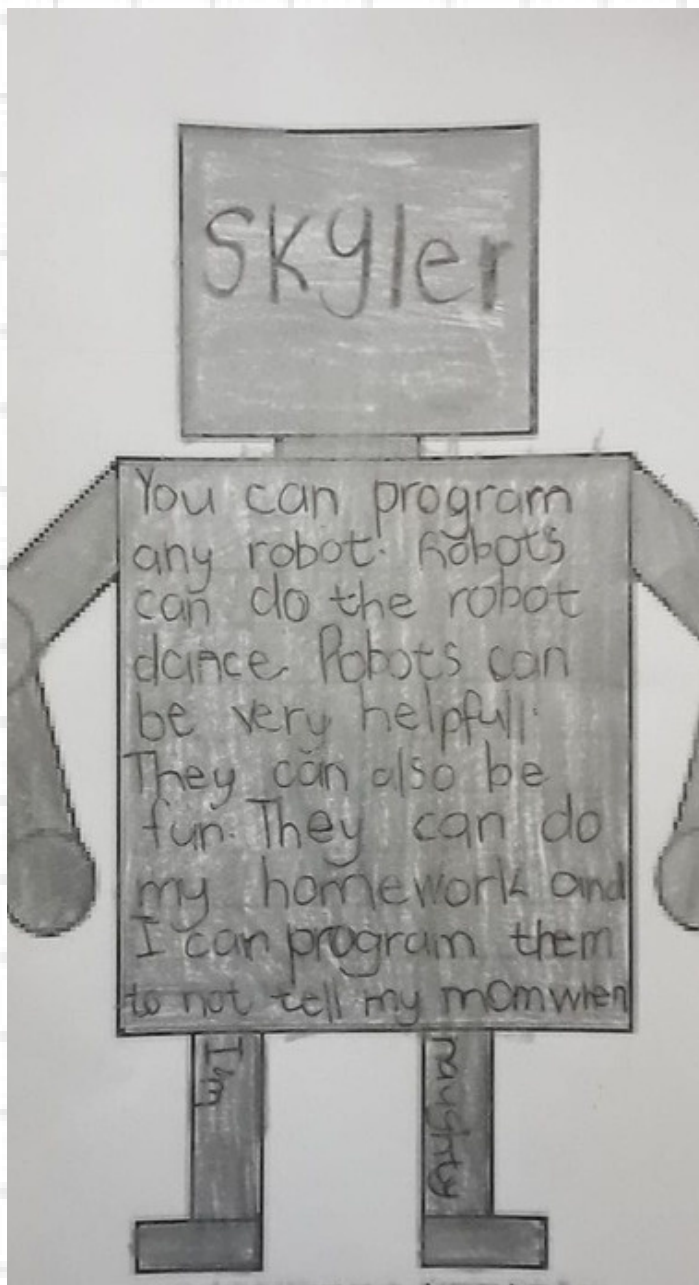 Skyler
You can program
any robot. Robots
can do the robot
dance. Robots can
be very helpfull.
They can also be
fun. They can do
my homework and
I can program them
to not tell my mom when
I'm
naughty